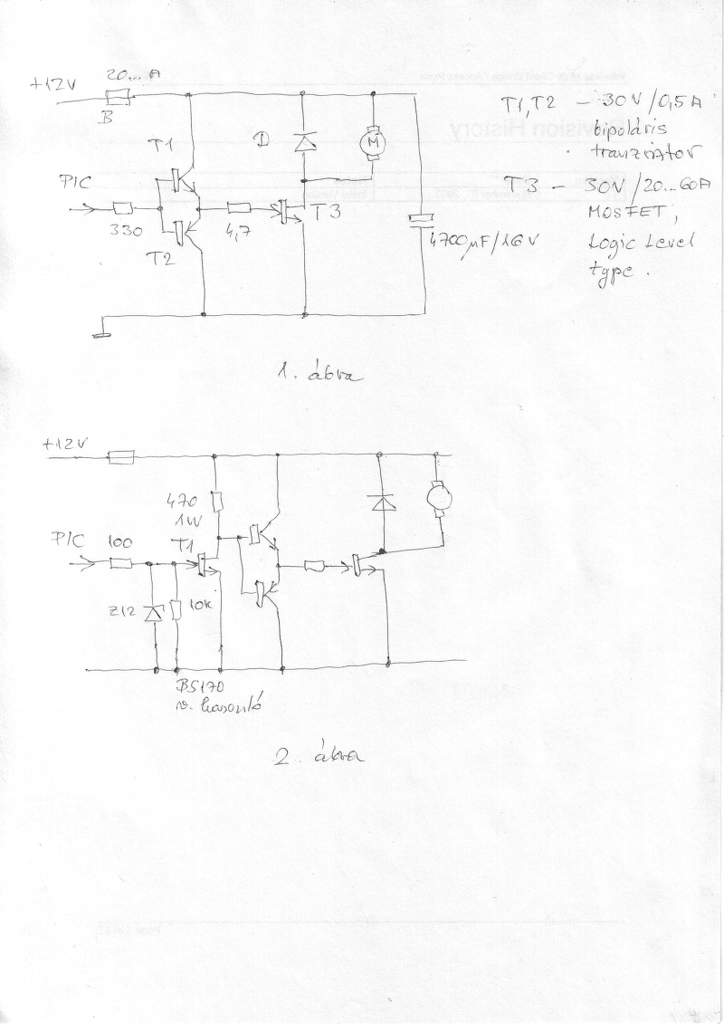 +12V
20... A
B
T1
D
M
PIC
330
T2
4,7
T3
4700μF/16V
T1, T2 – 30V/0,5A
bipoláris
tranzisztor
T3 – 30V/20...60A
MOSFET,
Logic Level
type.
1. ábra
+12V
470
1W
PIC
100
T1
Z12
10k
BS170
v. hasonló
2. ábra